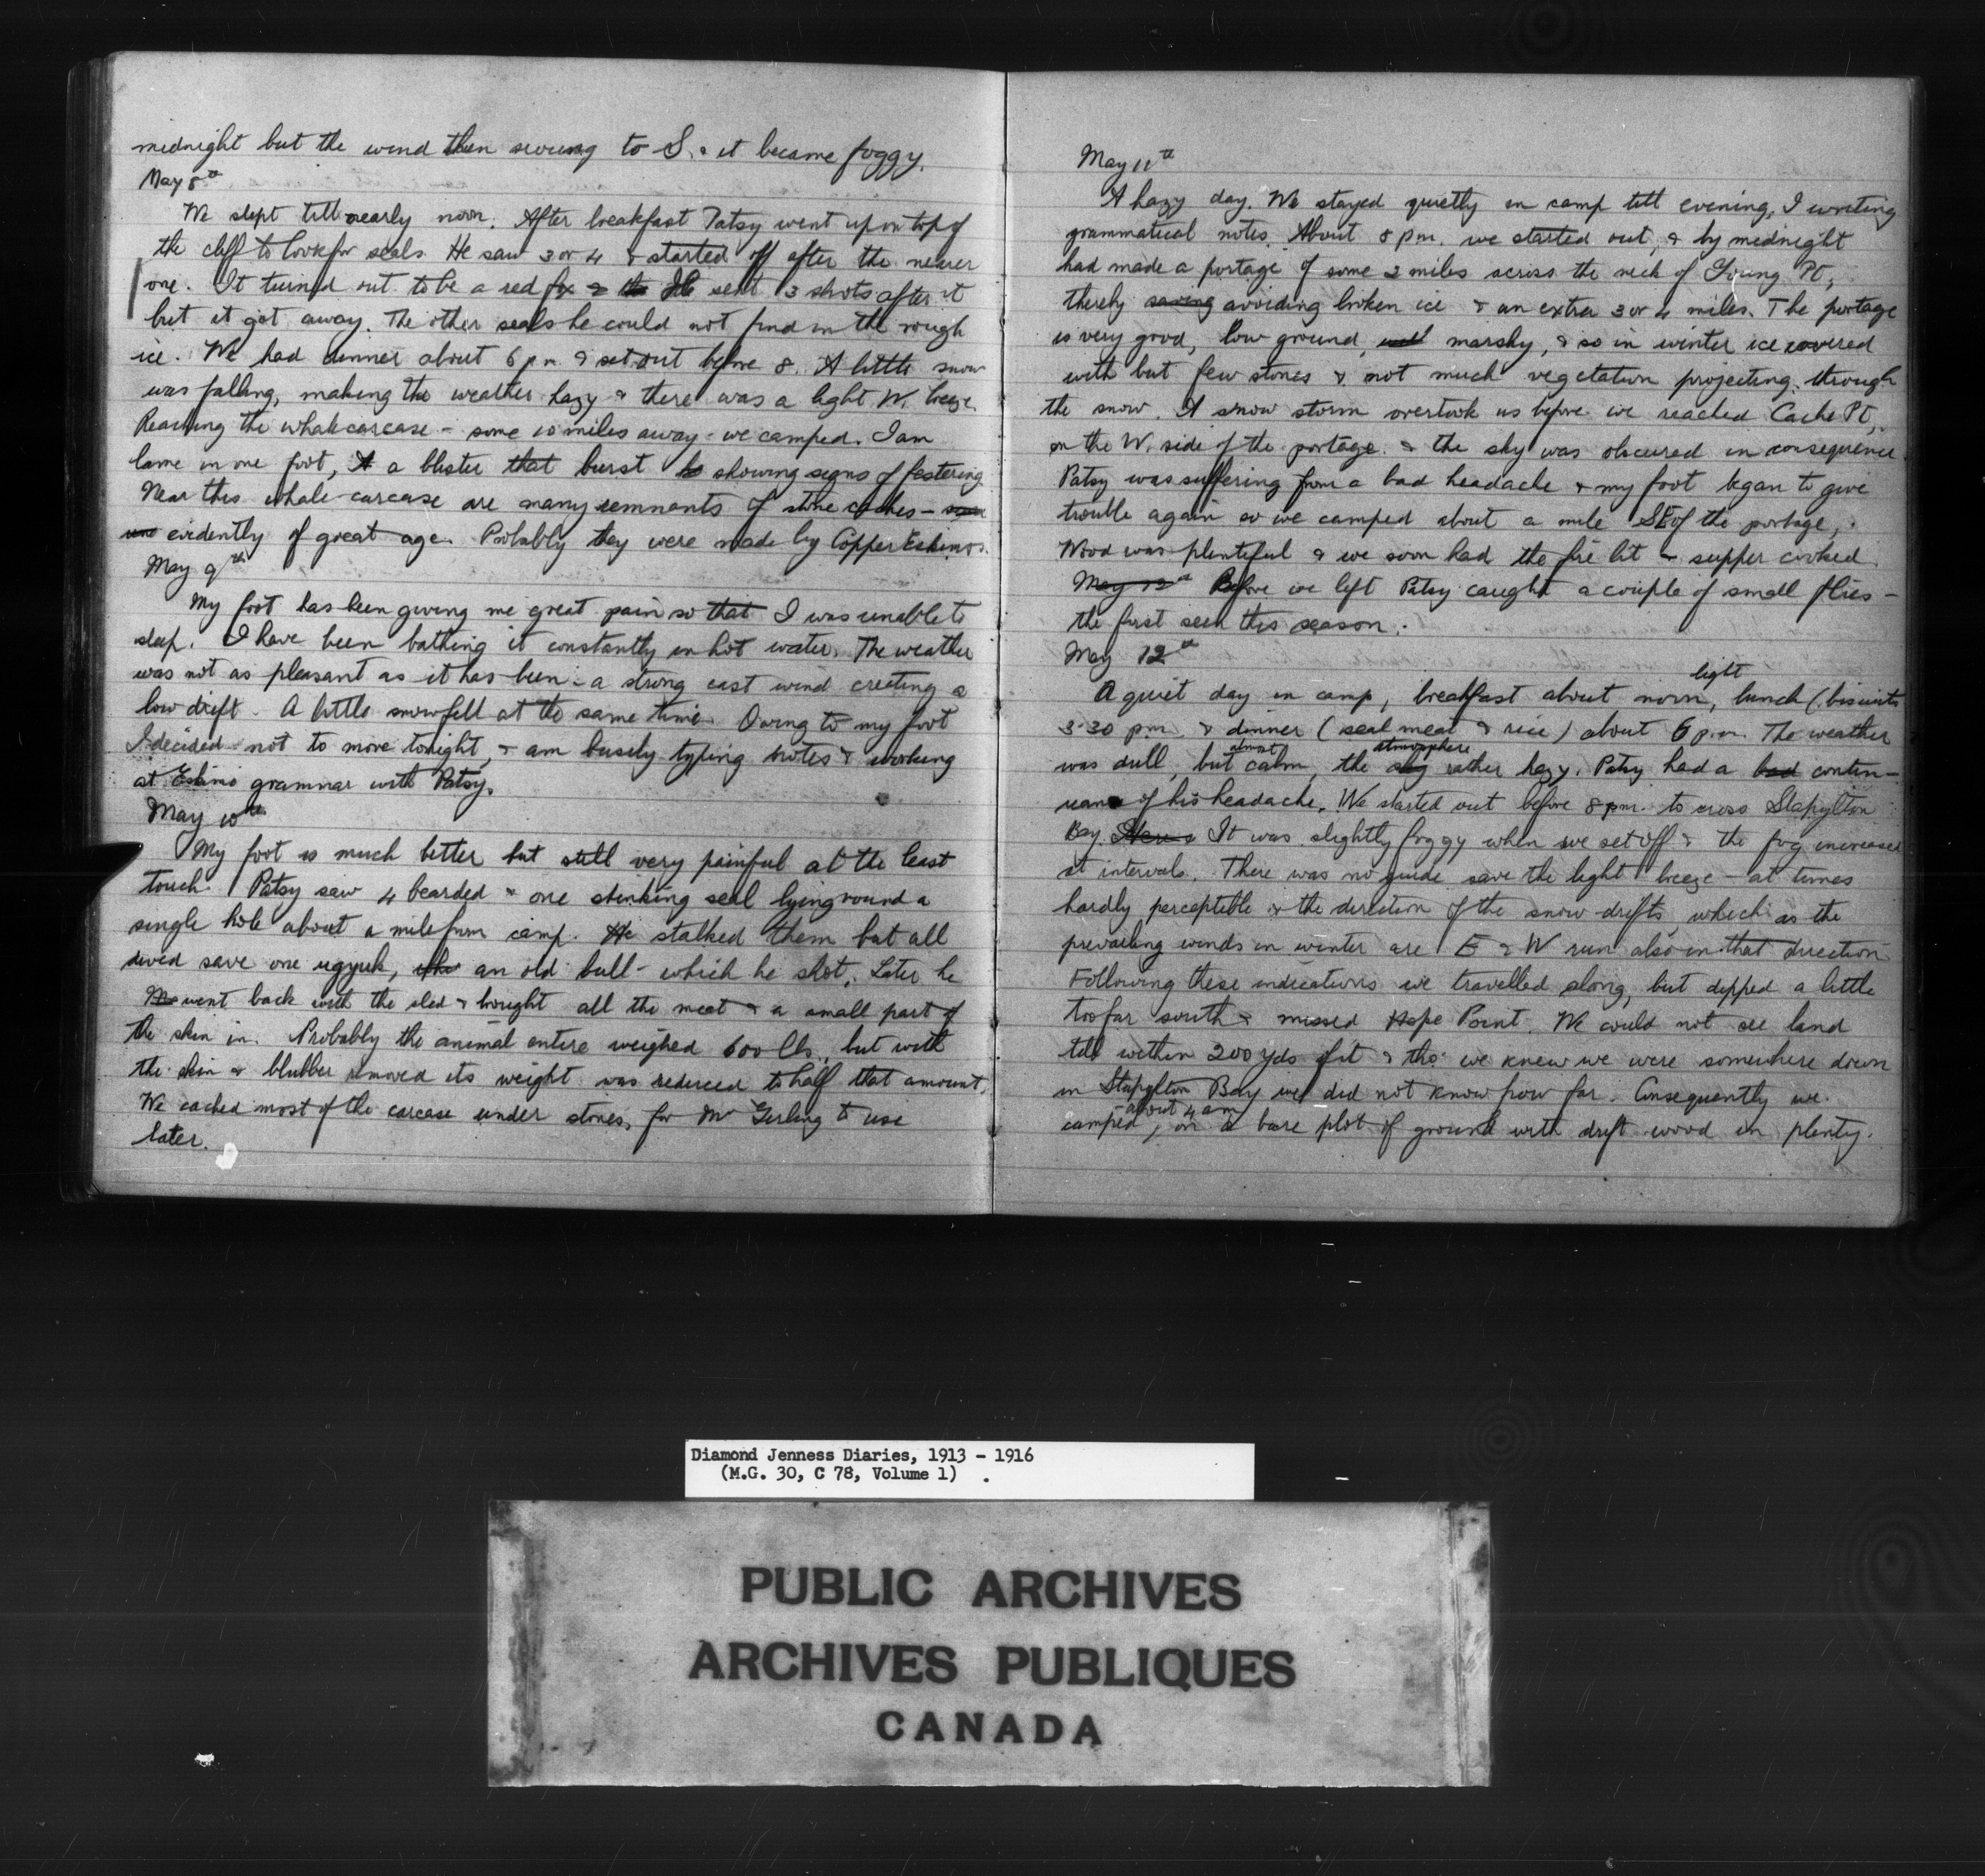 midnight but the wind then swung to S. & it became foggy.
May 8th
We slept till nearly noon. After breakfast Patsy went up on top of
the cliff to look for seals. He saw 3 or 4 & started off after the nearer
one. It turned out to be a red fox & the He sent 3 shots after it
but it got away. The other seals he could not find in the rough
ice. We had dinner about 6 pm & set out before 8. A little snow
was falling, making the weather hazy & there was a light W. breeze.
Reaching the whale carcase - some 10 miles away - we camped. I am
lame in one foot, a blister that burst showing signs of festering
Near this whale-carcase are many remnants of stone caches -
evidently of great age. Probably they were made by Copper Eskimos.
May 9th
My foot has been giving me great pain so that I was unable to
sleep. I have been bathing it constantly in hot water. The weather
was not as pleasant as it has been - a strong east wind creating a
low drift. A little snow fell at the same time. Owing to my foot
I decided not to move tonight, & am busily typing notes & working
at Eskimo grammar with Patsy.
May 10th
My foot is much better but still very painful at the least
touch. Patsy saw 4 bearded & one stinking seal lying round a
single hole about a mile from camp. He stalked them but all
dived save one ugyuk, who an old bull - which he shot. Later he
He went back with the sled & brought all the meat & a small part of
the skin in. Probably the animal entire weighed 600 lbs., but with
the skin & blubber removed its weight was reduced to half that amount.
We cached most of the carcase under stones, for Mr Girling to use
later.
May 11th
A hazy day. We stayed quietly in camp till evening, I writing
grammatical notes. About 8 pm. we started out, & by midnight
had made a portage of some 2 miles across the neck of Young Pt.,
thereby saving avoiding broken ice & an extra 3 or 4 miles. The portage
is very good, low ground, marshy, & so in winter ice covered
with but few stones & not much vegetation projecting through
the snow. A snow storm overtook us before we reached Cache Pt,
on the W. side of the portage & the sky was obscured in consequence
Patsy was suffering from a bad headache & my foot began to give
trouble again so we camped about a mile SE of the portage,
Wood was plentiful & we soon had the fire lit & supper cooked.
May 12th Before we left Patsy caught a couple of small flies -
the first seen this season.
May 12th
light
A quiet day in camp, breakfast about noon, lunch (biscuits
3.30 pm & dinner (seal meat & rice) about 6 p.m. The weather
almost atmosphere
was dull, but calm, the sky rather hazy. Patsy had a bad contin-
uance of his headache. We started out before 8 pm. to cross Stapylton
Bay. It was slightly foggy when we set off & the fog increased
at intervals. There was no guide save the light breeze - at times
hardly perceptible & the direction of the snow-drifts which as the
prevailing winds in winter are E & W run also in that direction
Following these indications we travelled along, but dipped a little
too far south & missed Hope Point. We could not see land
till within 200 yds of it & tho' we knew we were somewhere down
in Stapylton Bay we did not know how far. Consequently we
about 4 am
camped, on a bare plot of ground with drift wood in plenty.
Diamond Jenness Diaries, 1913 - 1916
(M.G. 30, C 78, Volume 1)
PUBLIC ARCHIVES
ARCHIVES PUBLIQUES
CANADA